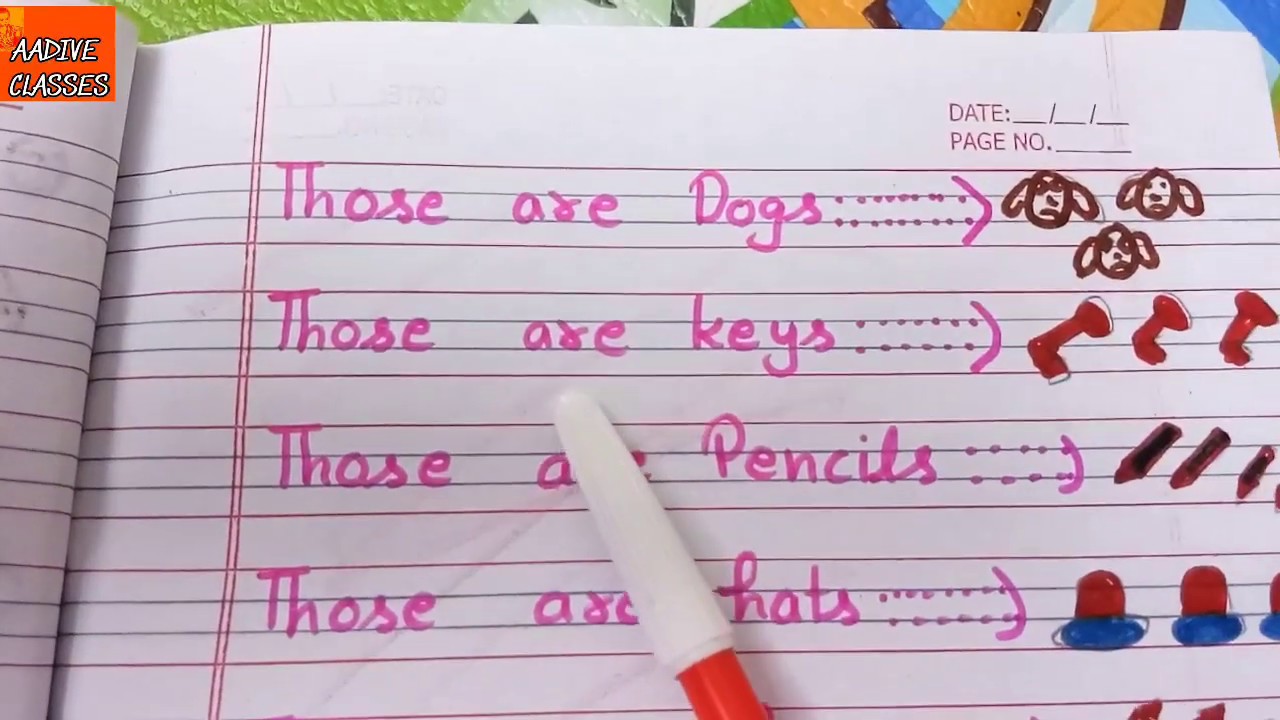 AADIVE
CLASSES
DATE:__/__/__
PAGE NO.______
Those are Dogs
Those are keys
Those Pencils
Those are hats